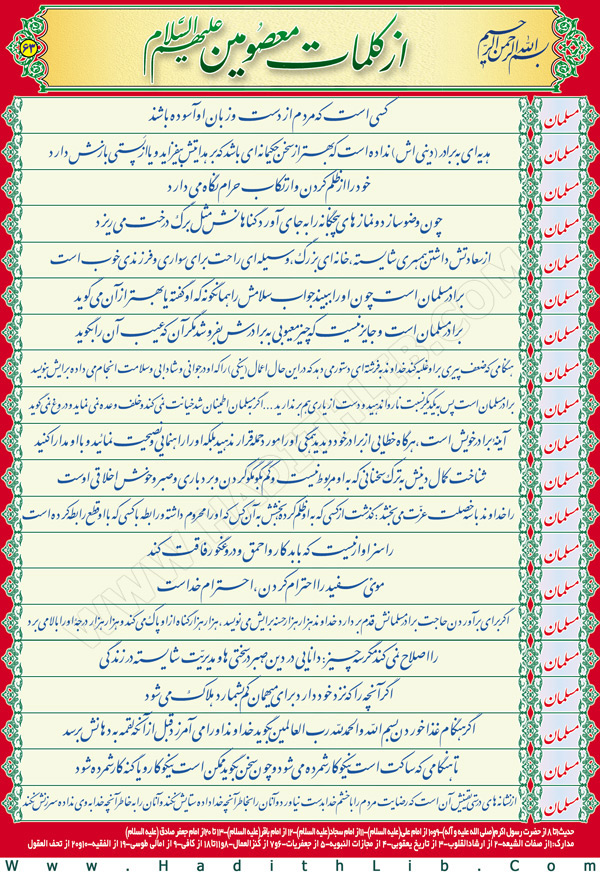 بسم الله الرحمن الرحیم
از کلمات معصومین علیهم السلام
۶۳
مسلمان کسی است که مردم از دست و زبان او آسوده باشند
مسلمان هدیه ای به برادر (دینی اش) نداده است که بهتر از سخن حکیمانه ای باشد که بر هدایتش بیفزاید و یا از پستی بازش دارد
مسلمان خود را از ظلم کردن و ارتکاب حرام نگاه می دارد
مسلمان چون وضو سازد و نمازهای پنجگانه را به جای آورد گناهانش مثل برگ درخت می ریزد
مسلمان از سعادتش داشتن همسری شایسته، خانه ای بزرگ، وسیله ای راحت برای سواری و فرزندی خوب است
مسلمان برادر مسلمان است چون او را ببیند جواب سلامش را همانگونه که او گفته یا بهتر از آن می گوید
مسلمان برادر مسلمان است و جایز نیست که چیز معیوبی به برادرش بفروشد مگر آن که عیب آن را بگوید
مسلمان هنگامی که ضعف پیری بر او غلبه کند خداوند به فرشته ای دستور می دهد که در این حال اعمال (نیکی) را که او در جوانی و شادابی و سلامت انجام می داده برایش بنویسد
مسلمان برادر مسلمان است پس به یکدیگر نسبت ناروا ندهید و دست از یاری هم برندارید ... اگر به مسلمان اطمینان شد خیانت نمی کند و خلف وعده نمی نماید و دروغ نمی گوید
مسلمان آینۀ برادر خویش است، هرگاه خطایی از برادر خود دیدید همگی او را مورد حمله قرار ندهید بلکه او را راهنمایی و نصیحت نمائید و با او مدارا کنید
مسلمان شناخت کمال دینش به ترک سخنانی که به او مربوط نیست و کم گفتگو کردن و بردباری و صبر و خوش اخلاقی اوست
مسلمان را خداوند با سه خصلت عزت می بخشد؛ گذشت از کسی که به او ظلم کرده، بخشش به آن کس که او را محروم داشته و رابطه با کسی که با او قطع رابطه کرده است
مسلمان را سزاوار نیست که با بدکار و احمق و دروغگو رفاقت کند
مسلمان موی سفید را احترام کردن، احترام خداست
مسلمان اگر برای برآوردن حاجت برادر مسلمانش قدم بردارد خداوند هزار هزار حسنه برایش می نویسد، هزار هزار گناه از او پاک می کند و هزار هزار درجه او را بالا می برد
مسلمان را اصلاح نمی کند مگر سه چیز: دانایی در دین، صبر در سختی ها و مدیریت شایسته در زندگی
مسلمان اگر آنچه را که نزد خود دارد برای میهمان کم شمارد هلاک می شود
مسلمان اگر هنگام غذا خوردن بسم الله و الحمدلله رب العالمین بگوید خداوند او را می آمرزد قبل از آنکه لقمه به دهانش برسد
مسلمان تا هنگامی که ساکت است نیکوکار شمرده می شود و چون سخن بگوید ممکن است نیکوکار و یا گنهکار شمرده شود
مسلمان از نشانه های درستی یقینش آن است که رضایت مردم را با خشم خدا بدست نیاورد و آنان را بخاطر آنچه خدا داده ستایش نکند و آنان را به خاطر آنچه خدا به وی نداده سرزنش نکند
حدیث ۱ تا ۸ از حضرت رسول اکرم (صلی الله علیه و آله)-۹و۱۰ از امام علی (علیه السلام)-۱۱ از امام سجاد (علیه السلام)-۱۲ از امام باقر (علیه السلام)-۱۳ تا ۲۰ از امام جعفر صادق (علیه السلام)
مدارک: ۱ از صفات الشیعه-۲ از ارشادالقلوب-۳ از تاریخ یعقوبی-۴ از مجازات النبویه-۵ از جعفریات-۶و۷ از کنزالعمال-۸و۱۱تا۱۸ از کافی-۹ از امالی طوسی-۱۹ از الفقیه-۱۰و۲۰ از تحف العقول
www.HadithLib.Com
WWW.HADITHLIB.COM